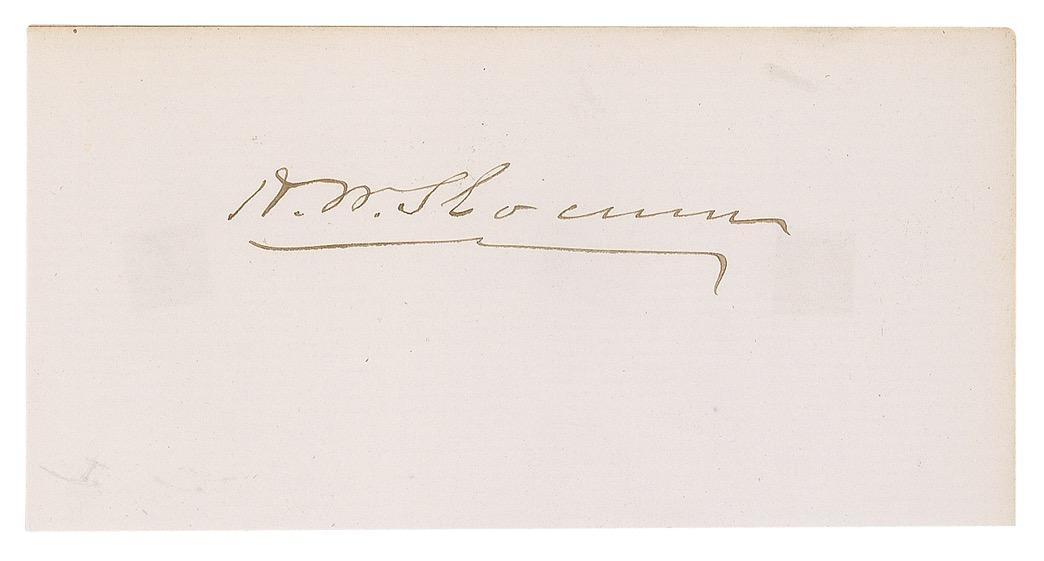 H. W. Slocum